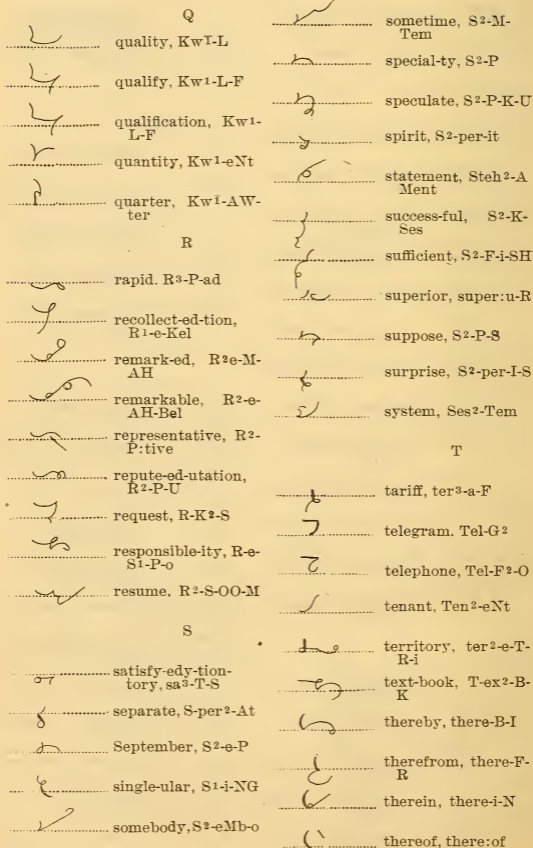 Q
quality, Kw1-L
qualify, Kw1-L-F
qualification, Kw1-
L-F
quantity, Kw1-eNt
quarter, Kw1-AW-
ter
R
rapid. R3-P-ad
recollect-ed-tion,
R1-e-Kel
remark-ed, R2e-M-
AH
remarkable, R2-e-
AH-Bel
representative, R2-
P:tive
repute-ed-utation,
R2-P-U
request, R-K2-S
responsible-ity, R-e-
S1-P-o
resume, R2-S-OO-M
S
satisfy-edy-tion-
tory, sa3-T-S
separate, S-per2-At
September, S2-e-P
single-ular, S1-i-NG
somebody, S2-eMb-o
sometime, S2-M-
Tem
special-ty, S2-P
speculate, S2-P-K-U
spirit, S2-per-it
statement, Steh2-A
Ment
success-ful, S2-K-
Ses
sufficient, S2-F-i-SH
superior, super:u-R
suppose, S2-P-S
surprise, S2-per-I-S
system, Ses2-Tem
T
tariff, ter3-a-F
telegram. Tel-G2
telephone, Tel-F2-O
tenant, Ten2-eNt
territory, ter2-e-T-
R-i
text-book, T-ex2-B-
K
thereby, there-B-I
therefrom, there-F-
R
therein, there-i-N
thereof, there:of